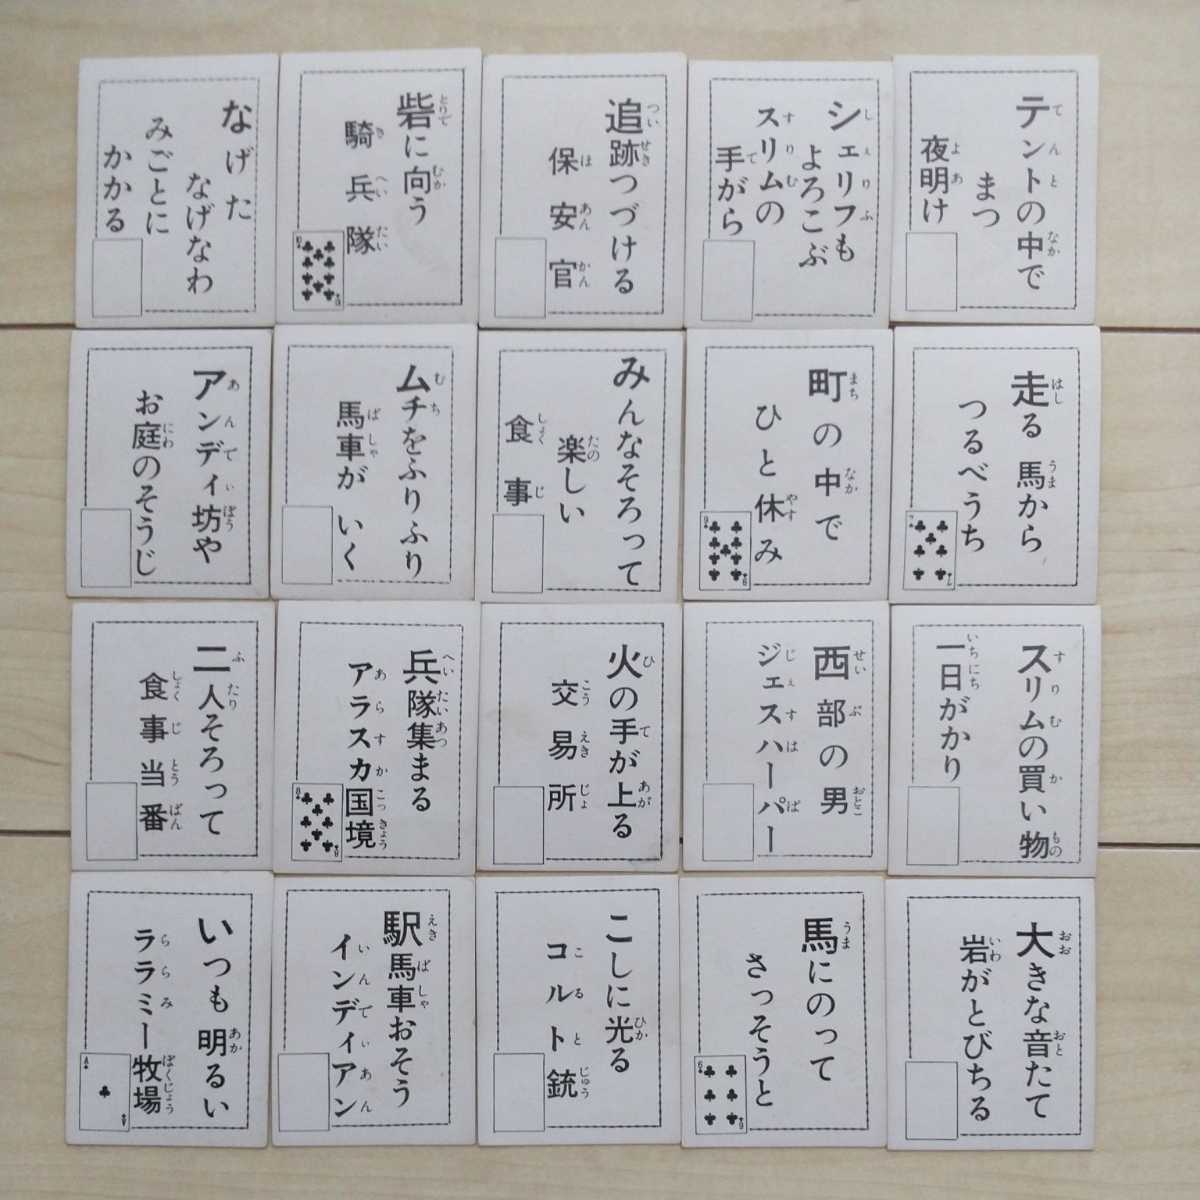 なげた
なげなわ
みごとに
かかる
砦に向う
騎兵隊
追跡つづける
保安官
シェリフも
よろこぶ
スリムの
手がら
テントの中で
まつ
夜明け
アンディ坊や
お庭のそうじ
ムチをふりふり
馬車が いく
みんなそろって
楽しい
食事
町の中で
ひと休み
走る 馬から
つるべうち
二人そろって
食事当番
兵隊集まる
アラスカ国境
火の手が上る
交易所
西部の男
ジェスハーパー
スリムの買い物
一日がかり
いつも明るい
ララミー牧場
駅馬車おそう
インディアン
こしに光る
コルト銃
馬にのって
さっそうと
大きな音たて
岩がとびちる